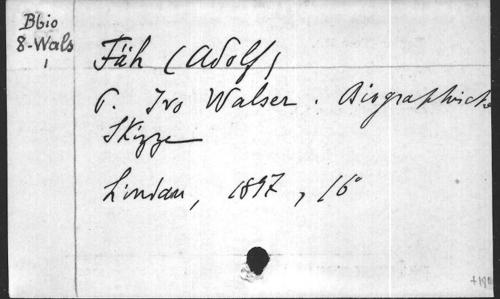 Bbio
8-Wals
1
Fäh (Adolf)
P. Ivo Walser. Biographische
Skizze
Lindau, 1897, 16°